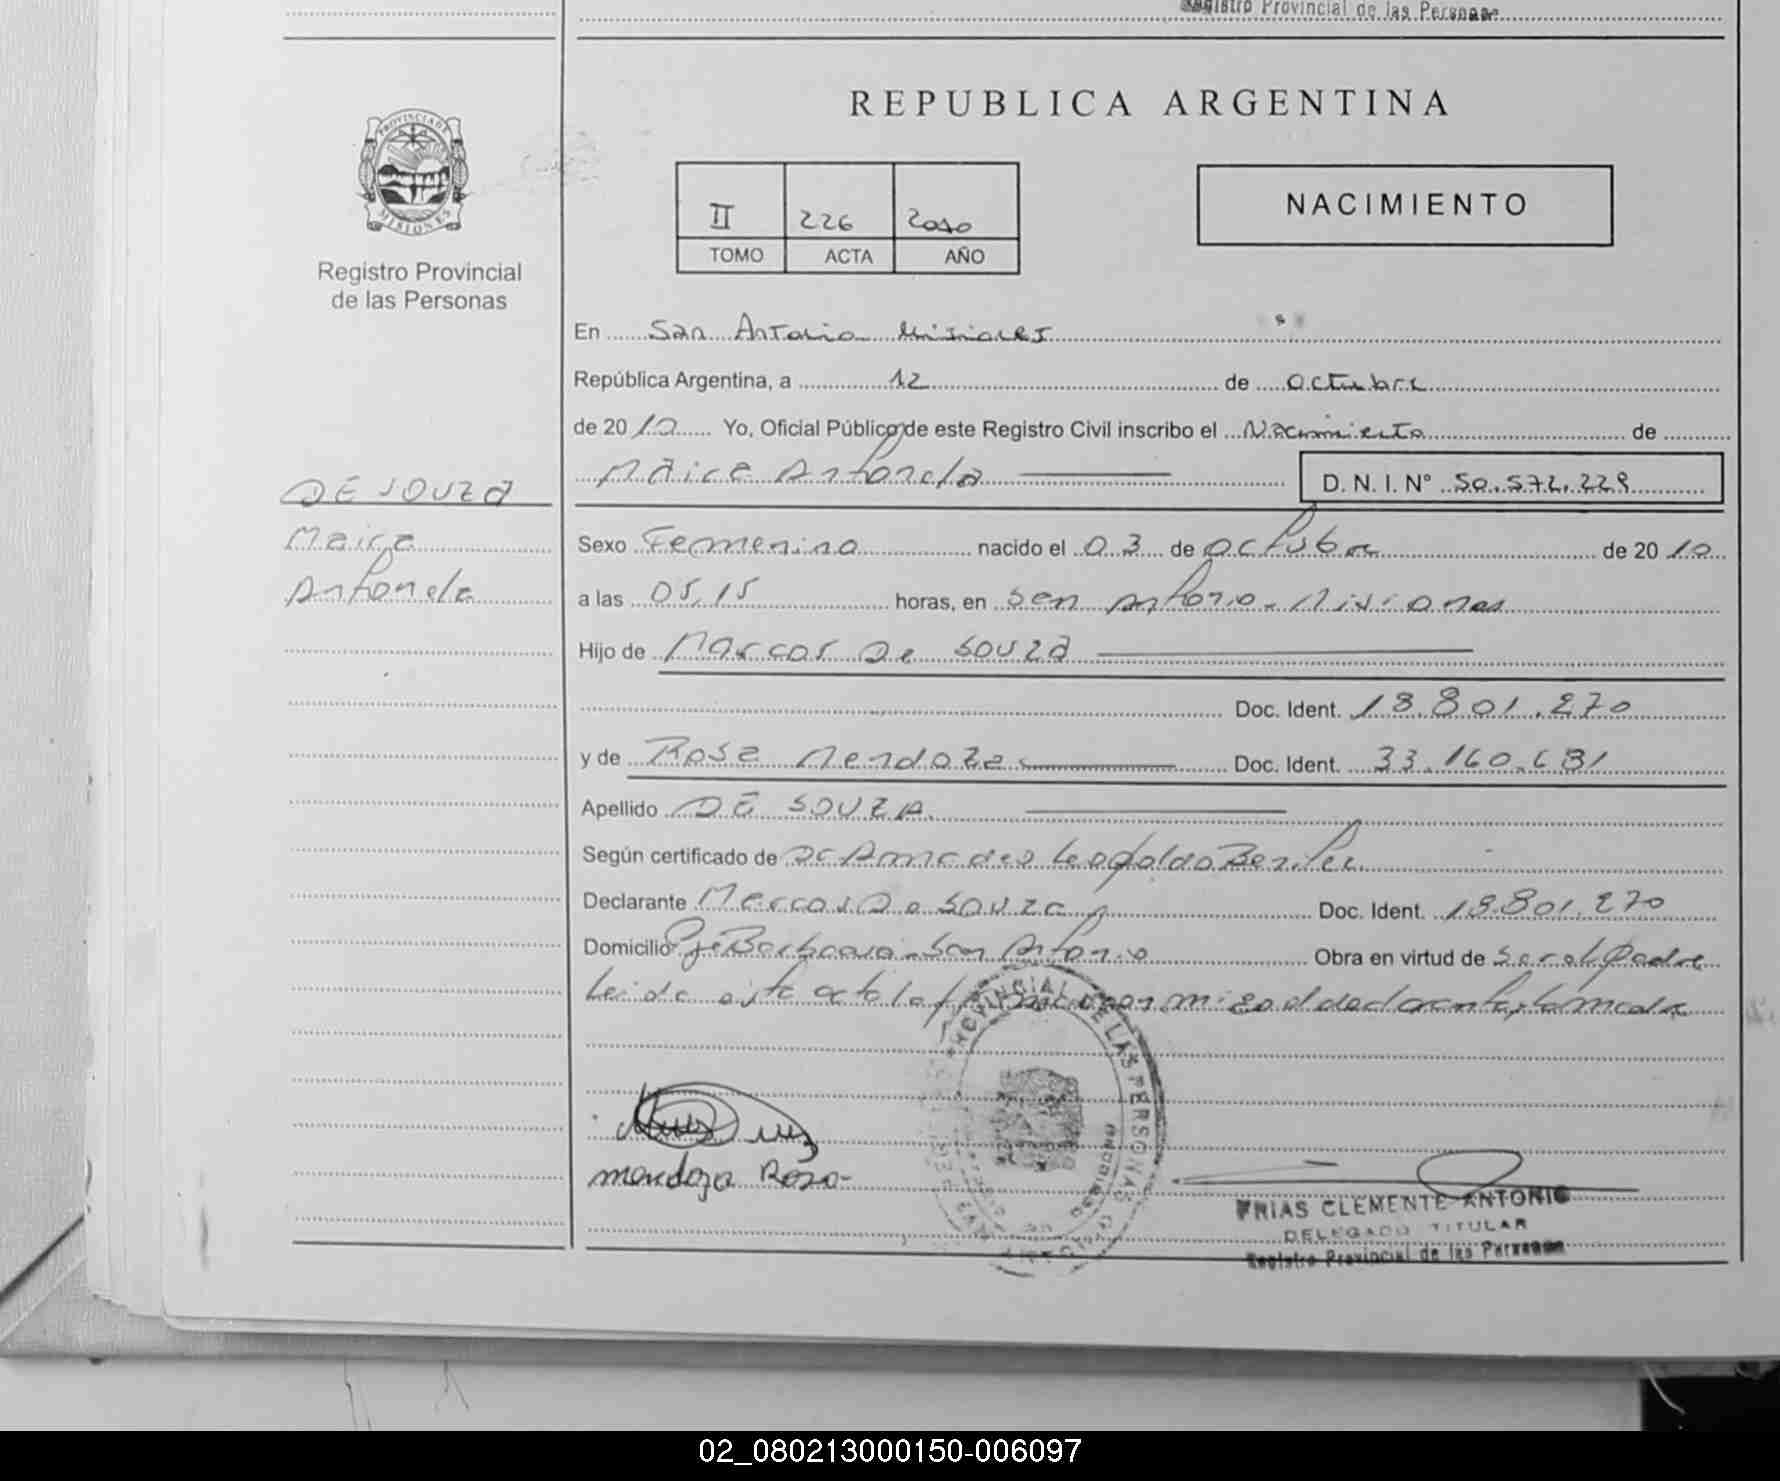 Registro Provincial de las Personas
REPUBLICA ARGENTINA
PROVINCIA DE
MISIONES
Registro Provincial
de las Personas
II 226 2010
TOMO ACTA AÑO
NACIMIENTO
En San Antonio Misiones
República Argentina, a 12 de octubre
de 2010 Yo, Oficial Público de este Registro Civil inscribo el Nacimiento de
Maira Antonela
D. N. I. Nº 50.572.229
DE SOUZA
Maira
Antonela
Sexo Femenino nacido el 03 de octubre de 2010
a las 05,15 horas, en San Antonio - Misiones
Hijo de Marcos De Souza
Doc. Ident. 18.801.270
y de Rosa Mendoza Doc. Ident. 33.160.681
Apellido DE SOUZA
Según certificado de Dr Amadeo Leopoldo Benitez
Declarante Marcos De Souza Doc. Ident. 18.801.270
Domicilio Pje Barbaroa - San Antonio Obra en virtud de Ser el padre
Leida esta acta la firma conmigo el declarante y la madre
PROVINCIAL DE LAS PERSONAS
mendoza Rosa
FRIAS CLEMENTE ANTONIO
DELEGADO TITULAR
Registro Provincial de las Personas
02_080213000150-006097